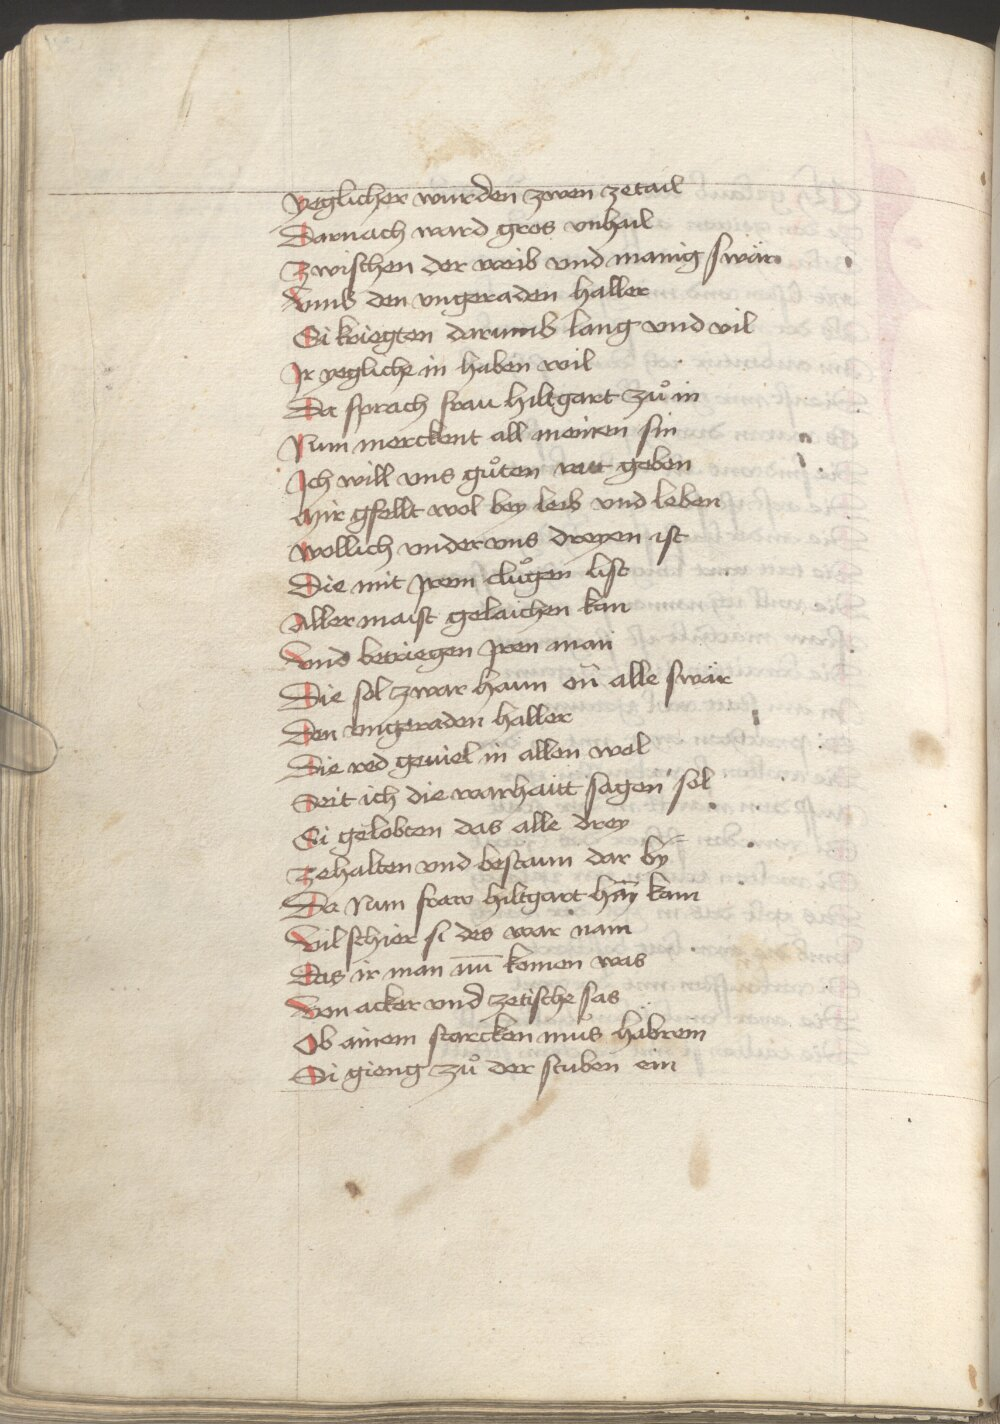 yeglicher wurden zwen zetail
Darnach ward gros vnhail
Zwischen der weib vnd manig swär
Vmb den vngeraden haller
Si kriegten darumb lang vnd vil
Ir yegliche in haben wil
Da sprach frau hiltgart zuͦ in
Num merckent all meinen sin
Ich will vns guͦten ratt geben
Mir gfellt wol bey leib vnd leben
Wollich vnder vns dreyen ist
Die mit yrem cluͦgen list
Aller maist gelaichen kan
Vnd betriegen yren man
Die sol zwar haun on̄ alle swär
Den vngeraden haller
Die red geuiel in allen wol
Seit ich die warhaitt sagen sol
Si gelobten das alle drey
Zehalten vnd bestaun dar by
Da Nun fraw hiltgart haÿ kam
Vil schier si des war nam
Das ir man nū komen was
Von acker vnd ze tische sas
Ob ainem starcken muͦs häbrein
Si gieng zuͦ der stuben ein